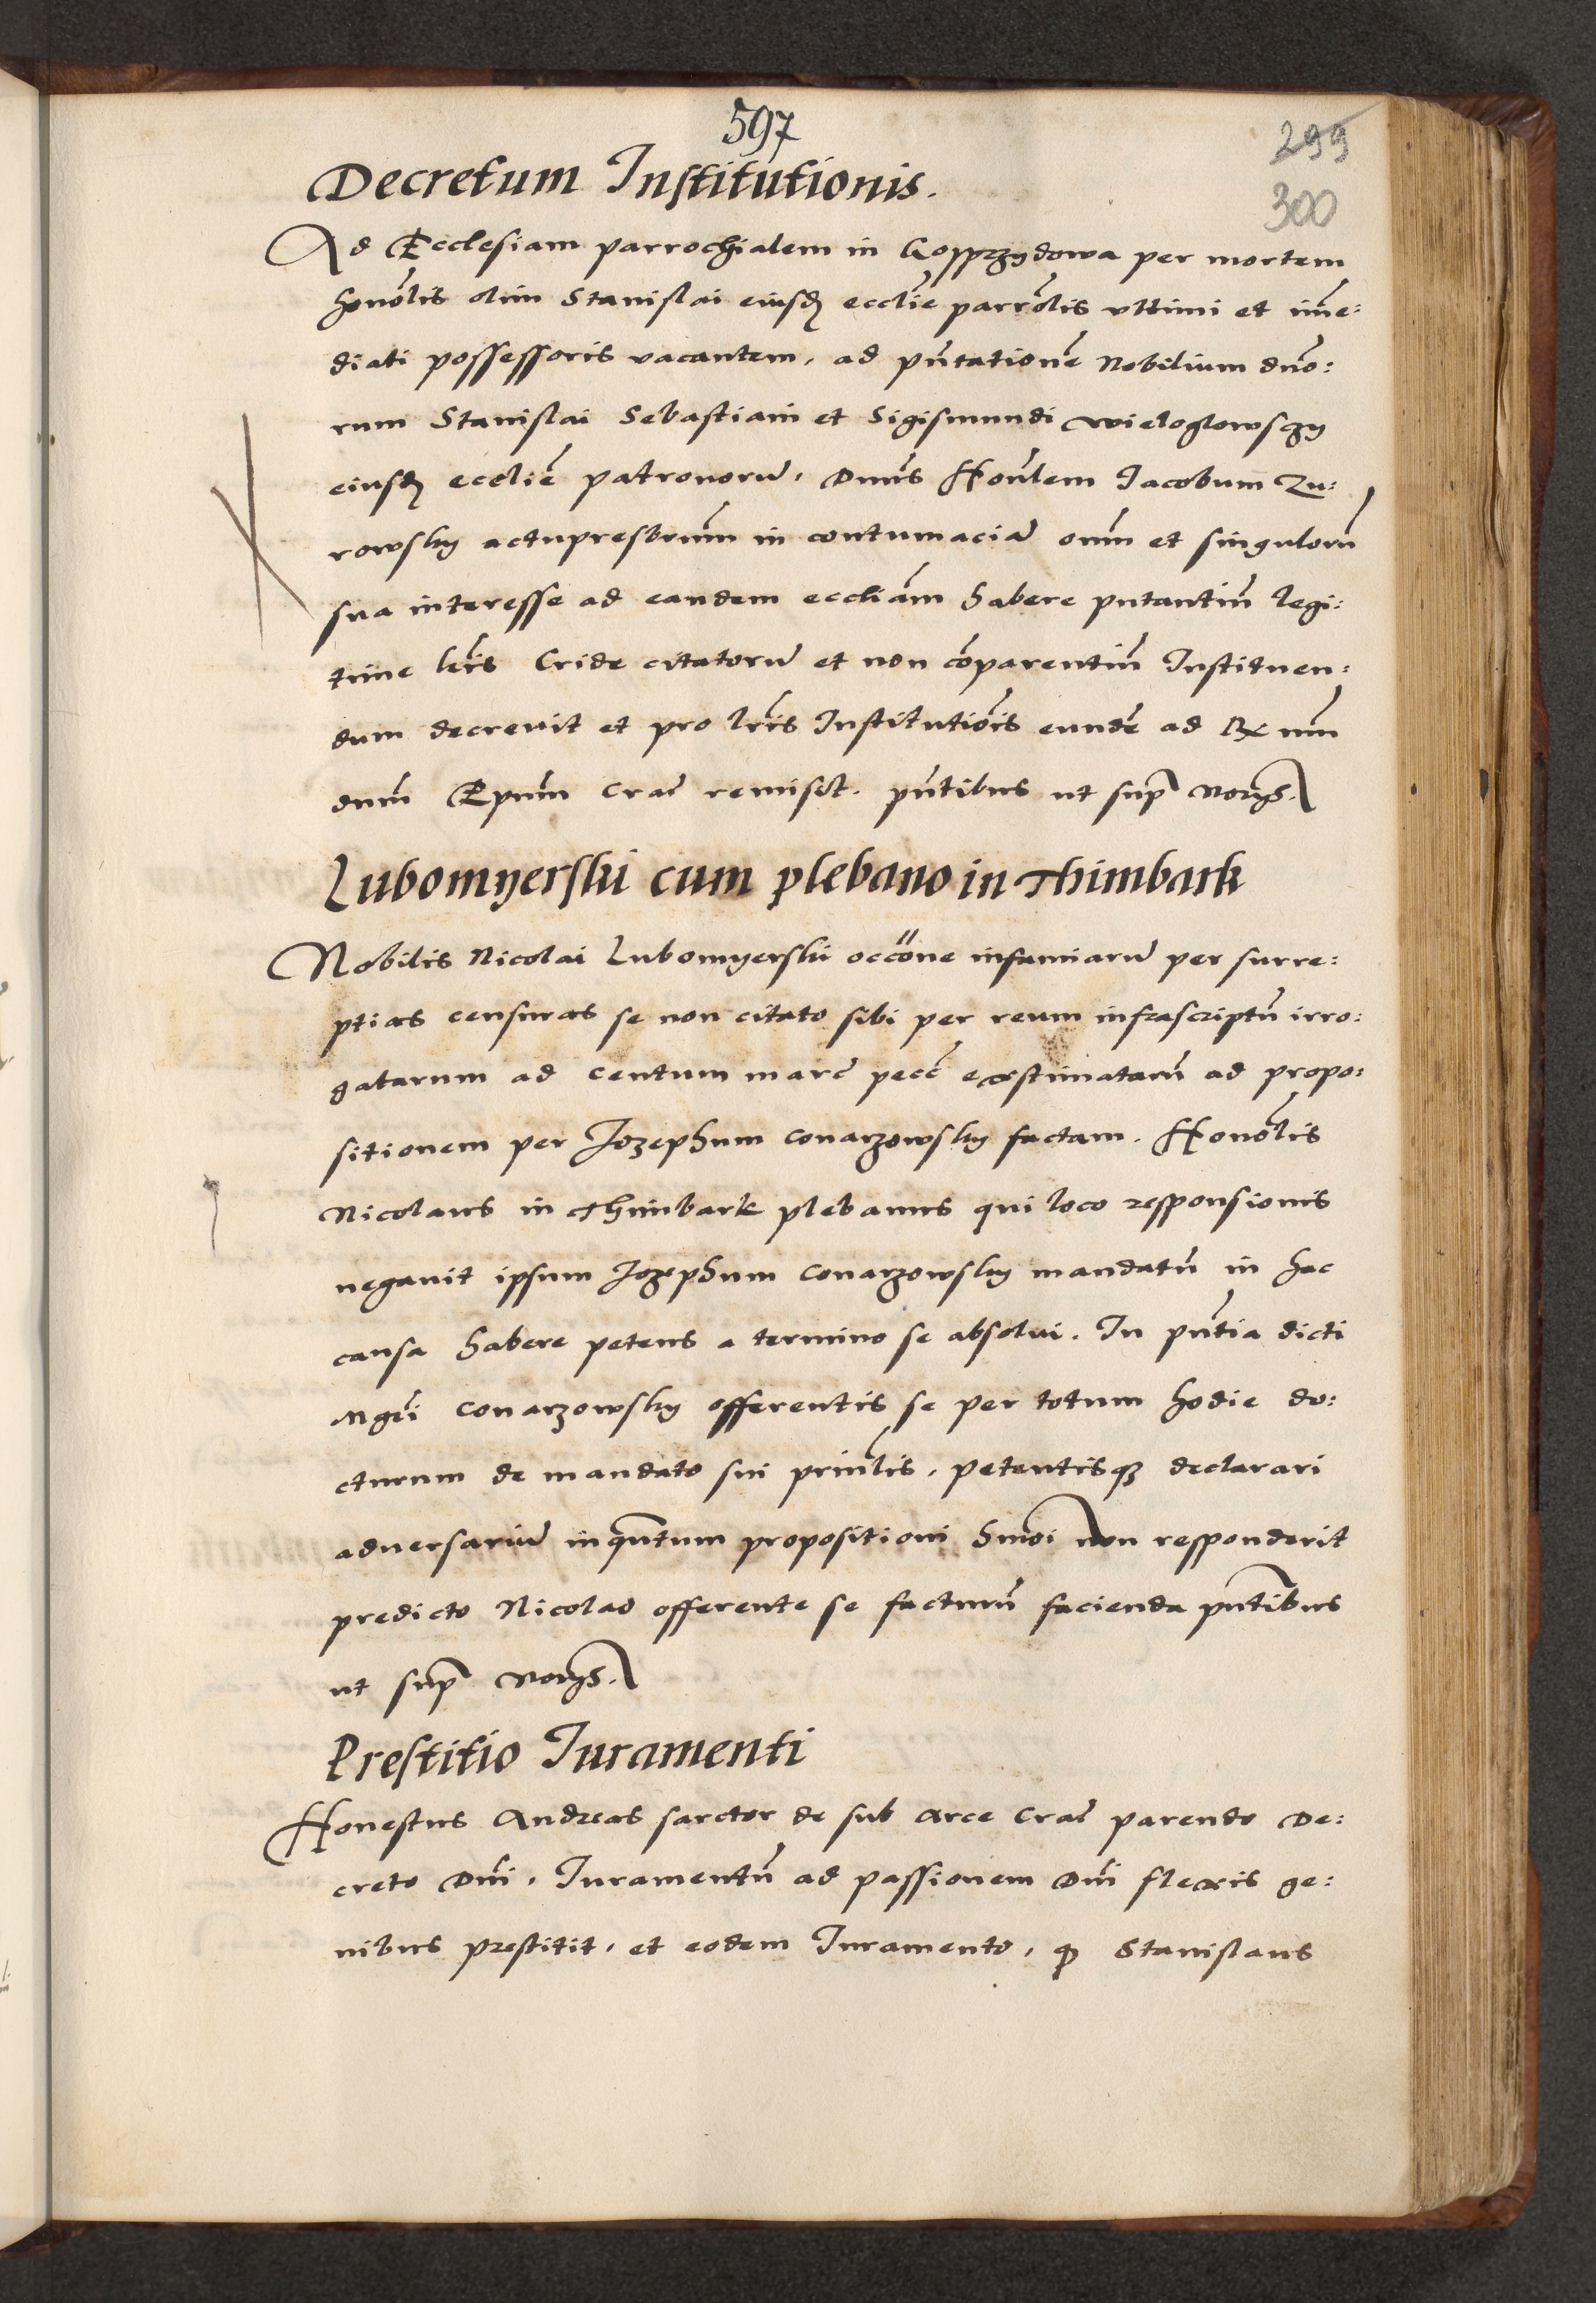 597
299
300
Decretum Institutionis.
Ad Ecclesiam parrochialem in Gosprzydowa per mortem
honōlis olim Stanislai eiusđ ecclīe parrōlis vltimi et im̄e:
diati possessoris vacantem, ad pn̄tationē Nobilium dn̄o:
rum Stanislai Sebastiani et Sigismundi wielogłowsczy
eiusđ ecclīe patronorū, Dnūs Hon̄lem Iacobum Zu:
rowsky actupresbrūm in contumaciā om̄m et singulorū
sua interesse ad eandem eccliām habere putantiū legi:
time lrīs Cride citatorū et non cōparentiū Instituen:
dum decreuit et pro lrīs Institutiōis eundē ad Rx nm̄
dnm̄ Epum̄ Crac̄ remisit. pn̄tibus ut sup̄ Norijs.
Lubomyerski cum plebano in Thimbark
Nobilis Nicolai Lubomyerski occōne infamiarū per surre:
ptias censuras se non citato sibi per reum infrascriptū irro:
gatarum ad centum marc̄ pecc̄ exstimatarū ad propo:
sitionem per Jozephum conarzowsky factam. Honōlis
Nicolaus in Thimbark plebanus qui loco responsionis
negauit ipsum Jozephum conarzowsky mandatū in hac
causa habere petens a termino se absolui. In pn̄tia dicti
Mgrī conarzowsky offerentis se per totum hodie do:
cturum de mandato sui prin̄lis, petentisqȝ declarari
aduersariū inqn̄tum propositioni hmōi non responderit
predicto Nicolao offerente se facturū facienda pn̄tibus
ut sup̄ Norijs.
Prestitio Iuramenti
Honestus Andreas sarctor de sub arce Crac̄ parendo De:
creto Dnī, Iuramentū ad passionem Dnī flexis ge:
nibus prestitit, et eodem Iuramento, ꝙ Stanislaus